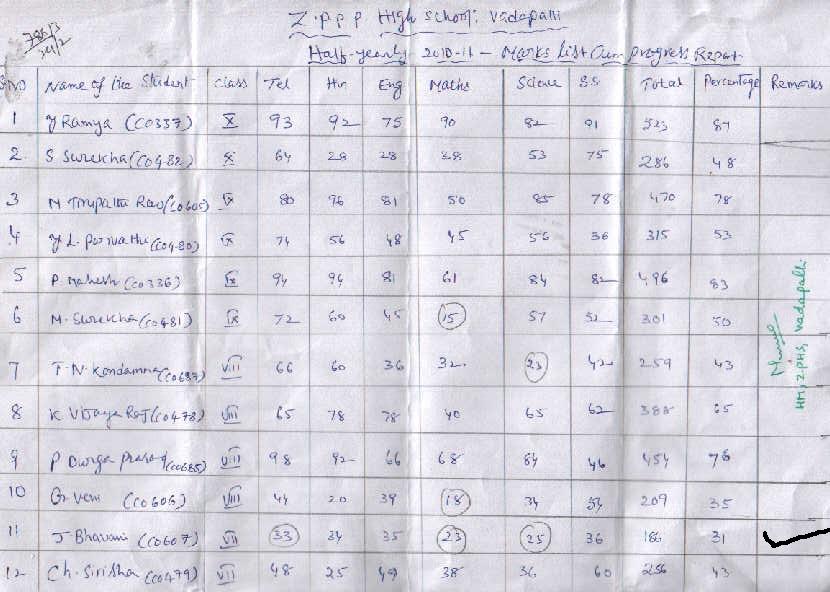 785/3
34/2
Z.P.P.P High School; Vadapalli
Half-yearly 2010-11 - Marks List Cum progress Report
SNO Name of the Student class Tel Hin Eng Maths Science S.S Total Percentage Remarks
1 Y Ramya (C0337) X 93 92 75 90 82 91 523 87
2 S Surekha (C0482) X 64 28 28 38 53 75 286 48
3 M Tirupathi Rao (C0605) IX 80 96 81 50 85 78 470 78
4 Y L. Parvathi (C0480) IX 74 56 48 45 56 36 315 53
5 P. Mahesh (C0336) IX 94 94 81 61 84 82 496 83
6 M. Surekha (C0481) IX 72 60 45 15 57 52 301 50
7 T. N. Kondamma VIII 66 60 36 32 23 42 259 43
8 K Vijaya Raj (C0478) VIII 65 78 78 40 65 62 388 65
9 P Durga prasad (C0685) VIII 98 92 66 68 84 46 454 76
10 G. Veni (C0606) VIII 44 20 39 18 34 54 209 35
11 J. Bhavani (C0607) VII 33 34 35 23 25 36 186 31
12 Ch. Sirisha (C0479) VII 48 25 49 38 36 60 256 43
HM, Z.PHS, Vadapalli